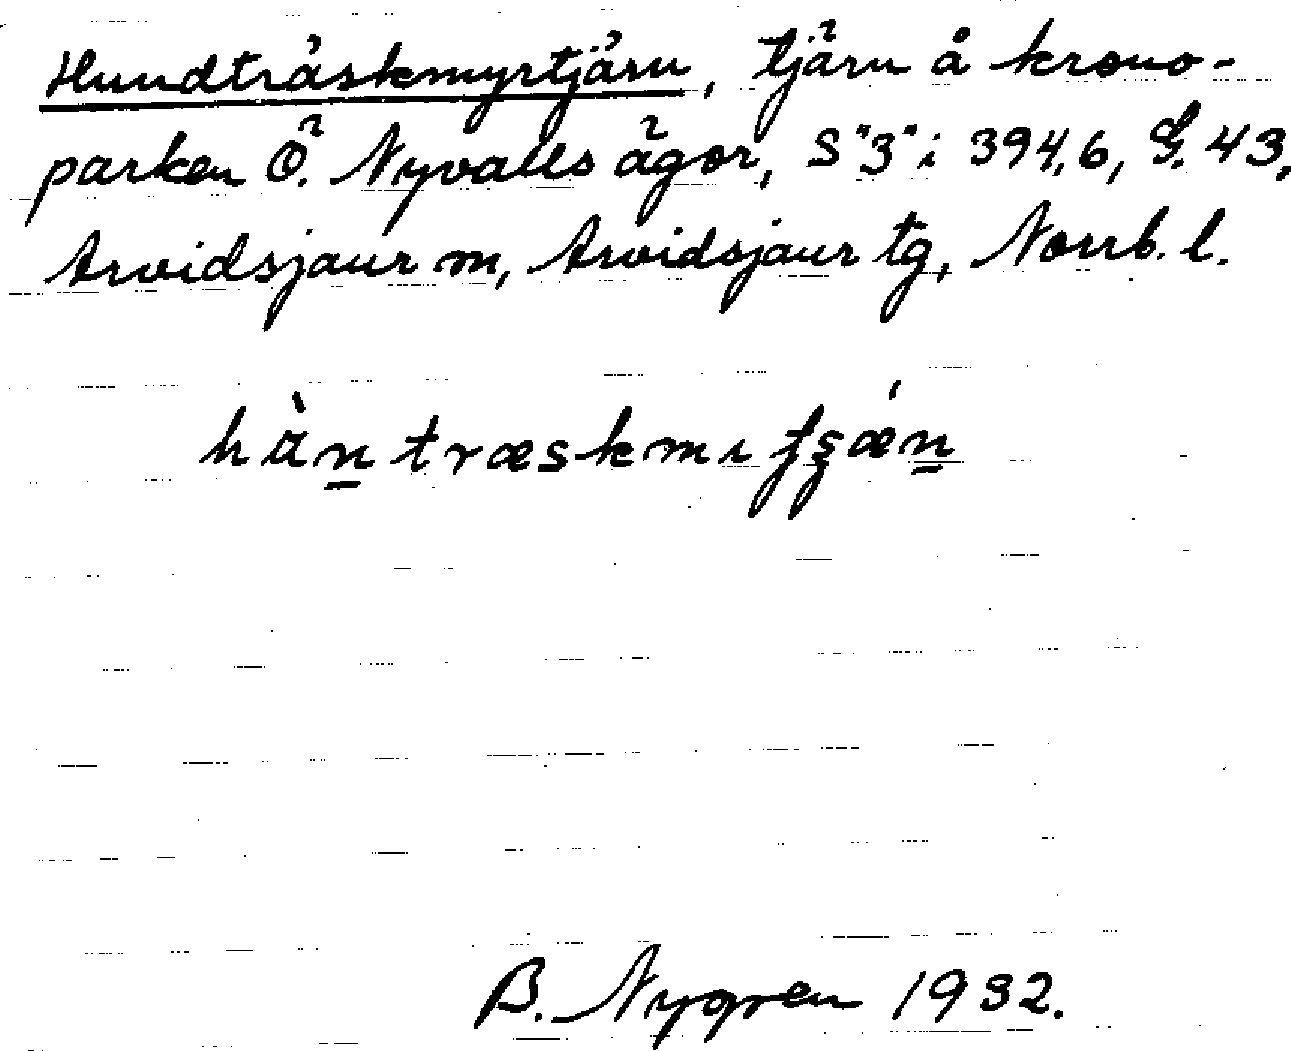 Hundträskmyrtjärn, tjärn å krono-
parken Ö. Nyvalls ägor, S "3" i 394,6, G. 43,
Arvidsjaur m, Arvidsjaur tg, Norrb. l.
B. Nygren 1932.